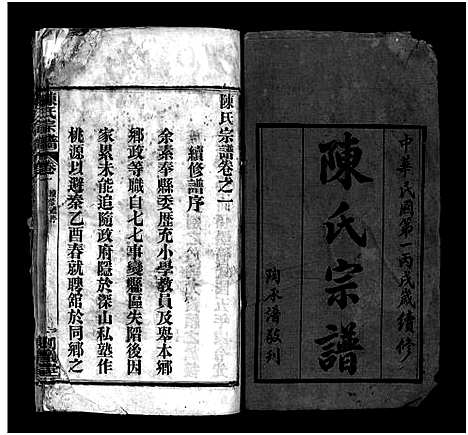 中華民國第一丙戌歲續修
陳氏宗譜
陳氏宗譜卷之一
續修譜序
余素奉縣委歷充小學教員及舉本鄉
鄉政等職自七七事變縣區失陷後因
家累未能追隨政府隱於深山私塾作
桃源以避秦乙酉春就聘館於同鄉之
陳氏宗譜 卷一